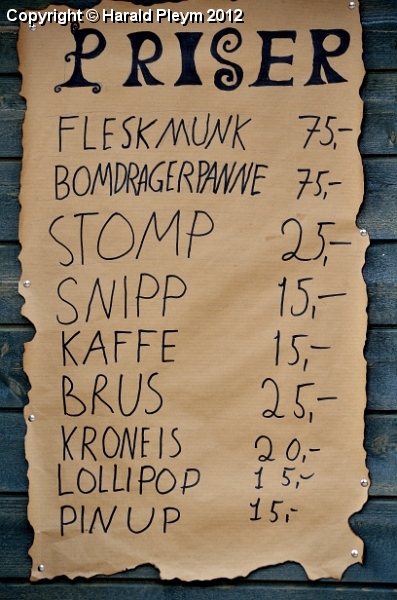 Copyright © Harald Pleym 2012
PRISER
FLESKMUNK 75,-
BOMDRAGERPANNE 75,-
STOMP 25,-
SNIPP 15,-
KAFFE 15,-
BRUS 25,-
KRONEIS 20,-
LOLLIPOP 15,-
PINUP 15,-